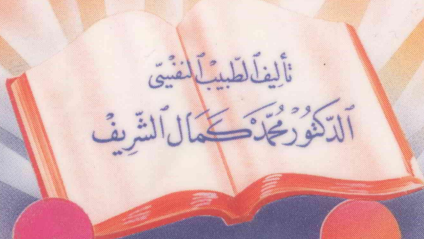 تأليف الطبيب النفسي
الدكتور محمد كمال الشريف